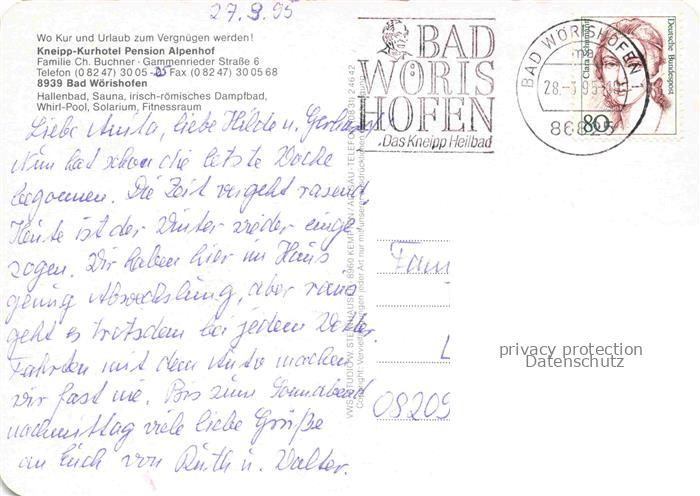 27.3.95
Wo Kur und Urlaub zum Vergnügen werden!
Kneipp-Kurhotel Pension Alpenhof
Familie Ch. Buchner · Gammenrieder Straße 6
Telefon (0 82 47) 30 05-25 Fax (0 82 47) 30 05 68
8939 Bad Wörishofen
Hallenbad, Sauna, irisch-römisches Dampfbad,
Whirl-Pool, Solarium, Fitnessraum
Liebe Anita, liebe Hilde u. Gerhard
Nun hat schon die letzte Woche
begonnen. Die Zeit vergeht rasend.
Heute ist der Winter wieder einge
zogen. Wir haben hier im Haus
genug Abwechslung, aber raus
geht es trotzdem bei jedem Wetter.
Fahrten mit dem Auto machen
wir fast nie. Bis zum Sonnabend
nachmittag viele liebe Grüße
an Euch von Ruth u. Walter.
BAD
WÖRIS
HOFEN
Das Kneipp Heilbad
BAD WÖRISHOFEN 1
28.-3.95
86825
Clara Schumann
Deutsche Bundespost
80
Fam
L
08209
privacy protection
Datenschutz